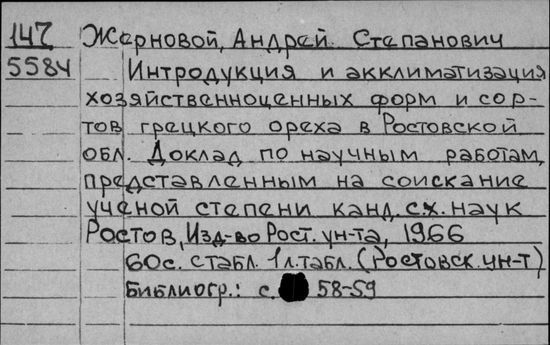 147 Жерновой, Андрей Степанович
5584 Интродукция и акклиматизация
хозяйственноценных форм и сор-
тов грецкого ореха в Ростовской
обл. Доклад по научным работам,
представленным на соискание
ученой степени канд. с.х. наук
Ростов, Изд-во Рост. ун-та, 1966
60с. с табл. 1 л. табл. (Ростовск. ун-т)
Библиогр.: с. 58-59